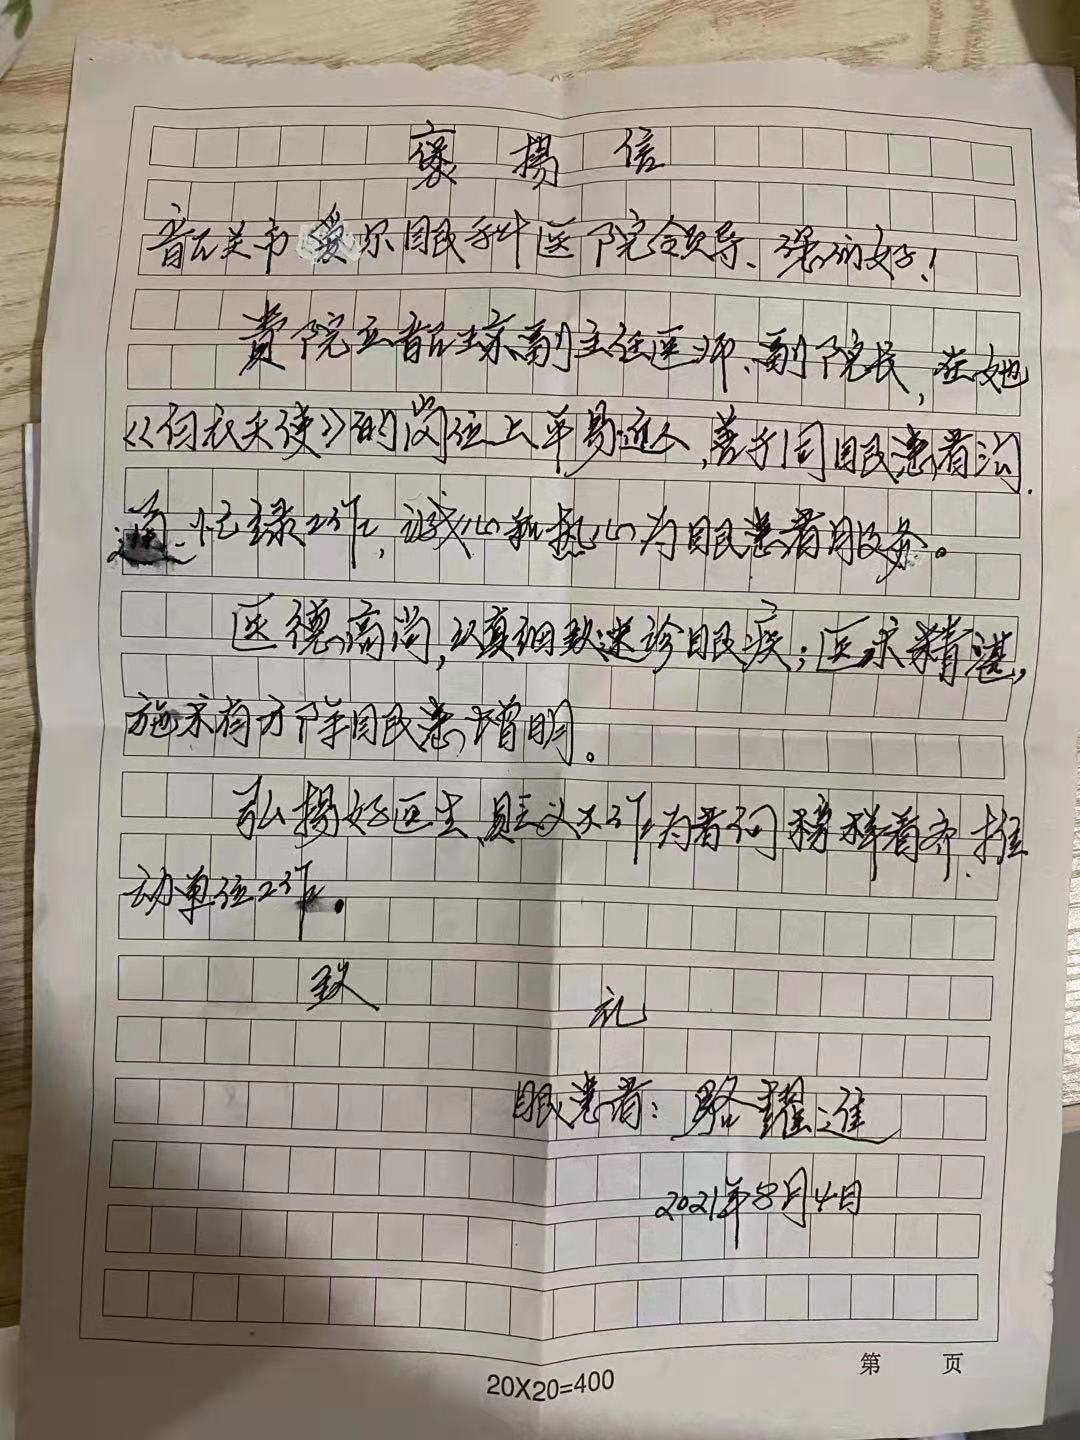 褒揚信
韶关市爱尔眼科医院领导、您们好！
貴院王韶琼副主任医师、副院长，在她
《白衣天使》的岗位上平易近人，善于同眼患者沟
通、忙碌工作，诚心和热心为眼患者服务。
医德高尚，认真细致迷诊眼疾；医术精湛，
施术有方 眼患增明。
弘揚好医生 义不 作为者 向榜样看齐、推
动单位工作。
致
礼
眼患者：骆耀進
2021年8月4日
第 页
20X20=400